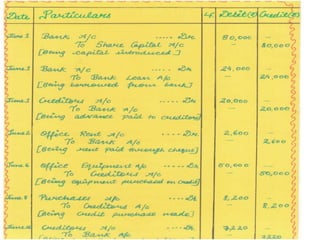 Date Particulars L.F. Debit(₹) Credit(₹)
June 1 Bank A/c ----- Dr. 80,000 -
To Share Capital A/c - 80,000
[Being capital introduced]
June 1 Bank A/c ----- Dr. 24,000 -
To Bank Loan A/c - 24,000
[Being borrowed from bank]
June 1 Creditors A/c ----- Dr. 20,000 -
To Bank A/c - 20,000
[Being advance paid to creditors]
June 2 Office Rent A/c ----- Dr. 2,600 -
To Bank A/c - 2,600
[Being rent paid through cheque]
June 6 Office Equipment A/c ----- Dr 50,000 -
To Creditors A/c - 50,000
[Being equipment purchased on credit]
June 8 Purchases A/c ----- Dr. 8,200 -
To Creditors A/c - 8,200
[Being credit purchase made]
Creditors A/c ----- Dr. 7,220 -
To Bank A/c - 7,220